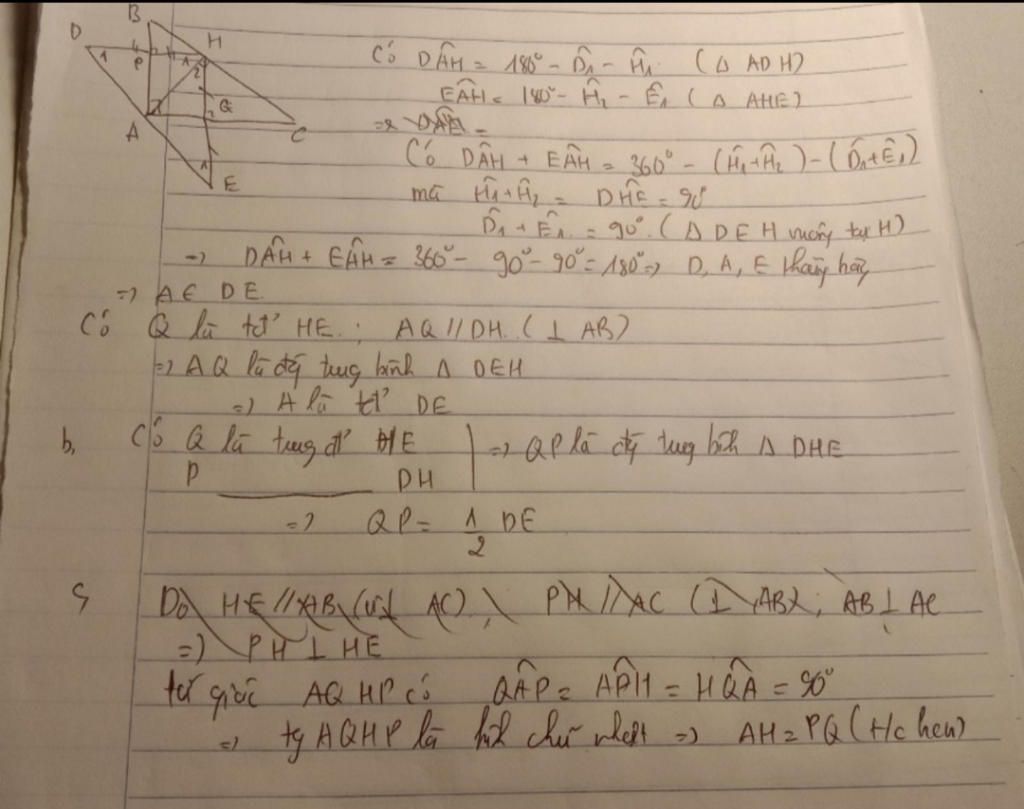 B
D
H
4
1
P
1
2
Q
A
C
1
E
Có DÂH = 180° - D̂1 - Ĥ1 (Δ ADH)
EÂH = 180° - Ĥ2 - Ê1 (Δ AHE)
=>
Có DÂH + EÂH = 360° - (Ĥ1+Ĥ2) - (D̂1+Ê1)
mà Ĥ1+Ĥ2 = DĤE = 90°
D̂1 + Ê1 = 90° (Δ DEH vuông tại H)
=> DÂH + EÂH = 360° - 90° - 90° = 180° => D, A, E thẳng hàng
=> A ∈ DE
Có Q là tđ' HE ; AQ // DH (⊥ AB)
=> AQ là đg trung bình Δ DEH
=> A là tđ' DE
b, Có Q là trung đ' HE | => QP là đg trung bình Δ DHE
P ______ DH
=> QP = 1/2 DE
Do HE // AB (⊥ AC), PH // AC (⊥ AB), AB ⊥ AC
=> PH ⊥ HE
tứ giác AQHP có QÂP = AP̂H = HQ̂A = 90°
=> tg AQHP là hình chữ nhật => AH = PQ (t/c hcn)